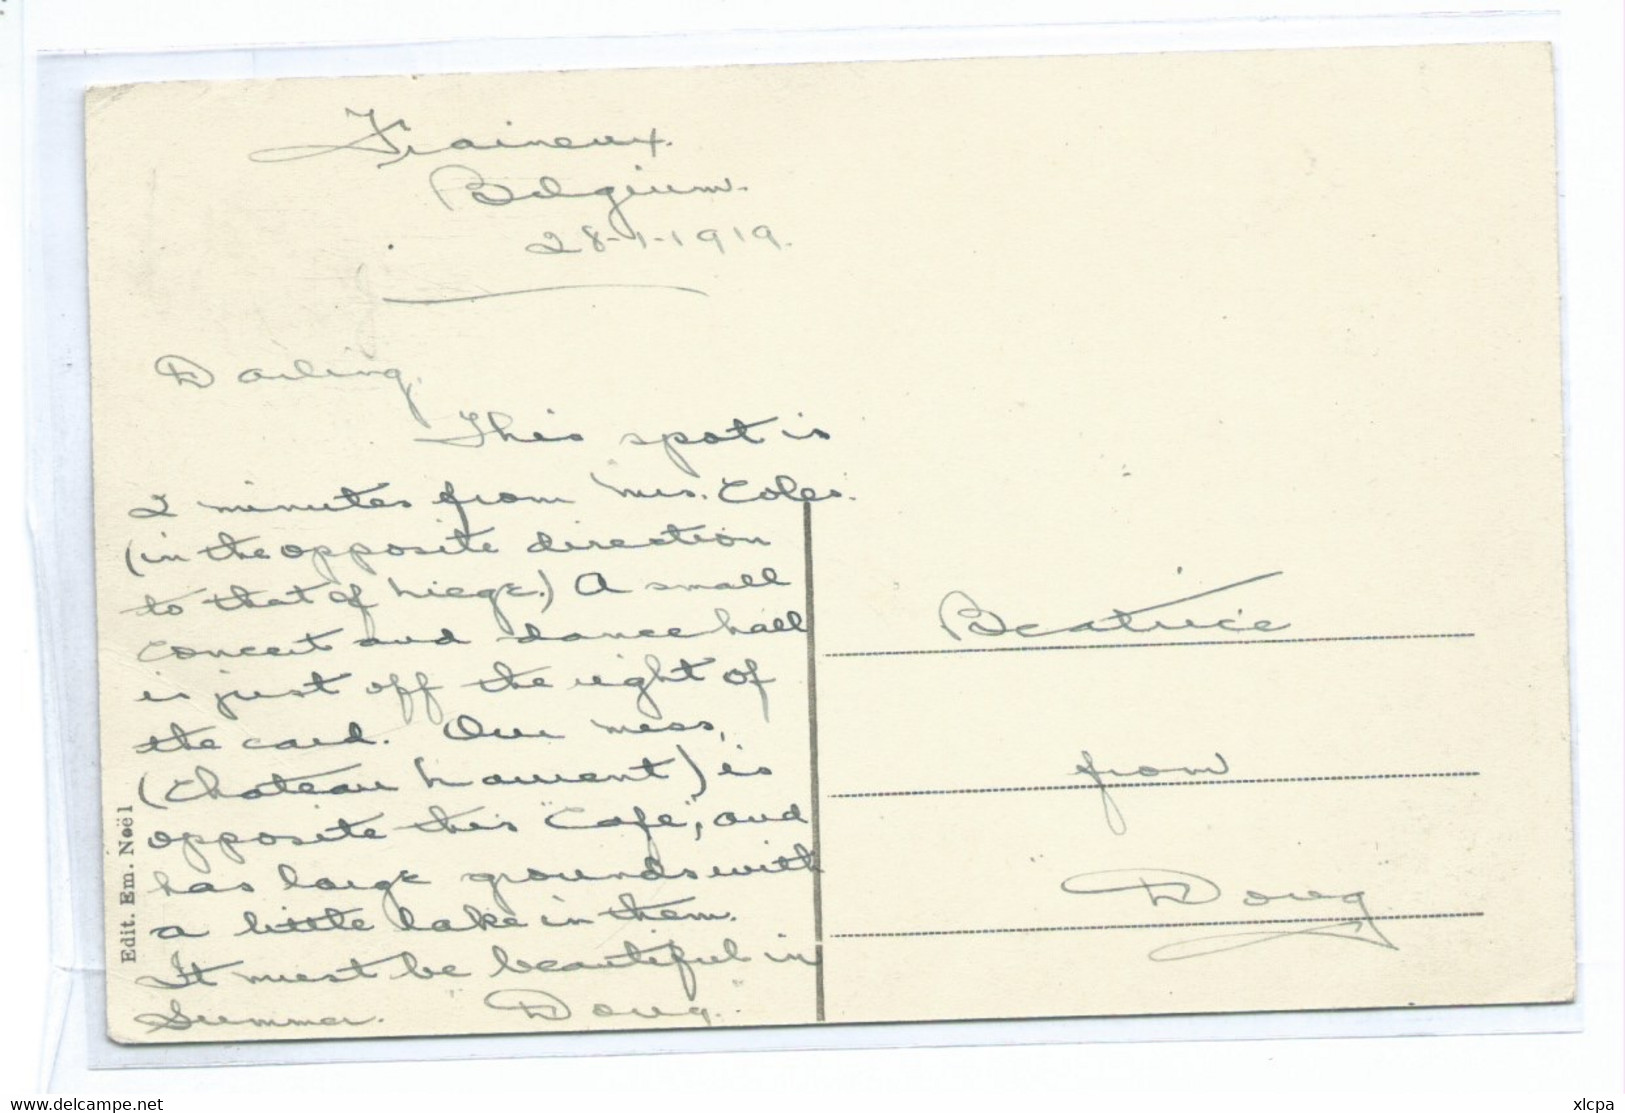 Fraineux.
Belgium.
28-1-1919.
Darling,
This spot is
2 minutes from Mrs. Coles.
(in the opposite direction
to that of Liege.) A small
concert and dance hall
is just off the right of
the card. Our mess,
(Chateau Laurent) is
opposite this "Cafe", and
has large grounds with
a little lake in them.
It must be beautiful in
Summer. "Doug."
Beatrice
from
Doug
Edit. Em. Noël
www.delcampe.net
xlcpa